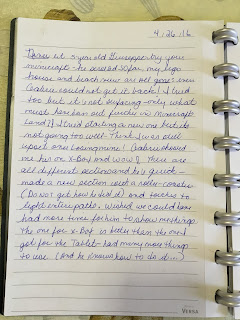 4/26/16
Never let 5 year old Giuseppe by your
minecraft - he sealed so far, my lego
house and beach view are all gone - even
Gabriu could not get it back! I tried
too but it is not surfacing - only what
must have been out further in Minecraft
Land!! I tried starting a new one but its
not going too well - Think I'm still
upset over losing mine! Gabriu showed
me his on X-Box and wow! There are
all different sections and he's quick -
made a new section with a roller-coaster
(Do not get how he did it) and touches to
light entire paths. Wished we could have
had more time for him to show me things.
The one for X-Box is better than the one I
got for the Tablet - had many more things
to use (and he knows how to do it...)
VERSA